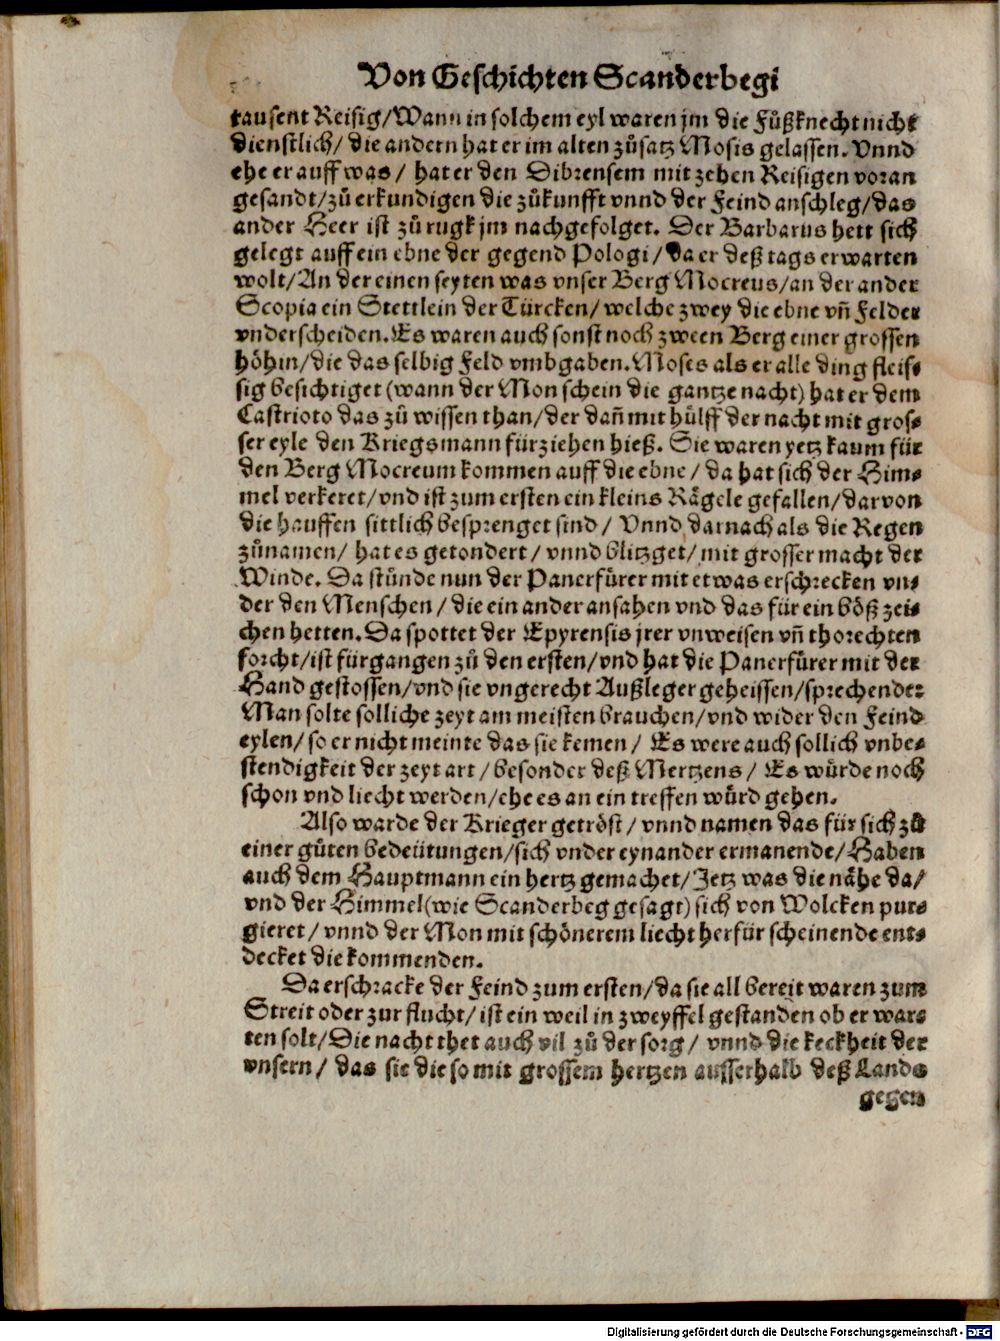 Von Geschichten Scanderbegi
tausent Reisig/Wann in solchem eyl waren jm die Fůßknecht nicht
dienstlich/ die andern hat er im alten zůsatz Mosis gelassen. Vnnd
ehe er auff was/ hat er den Dibrensem mit zehen Reisigen voran
gesandt/zů erkundigen die zůkunfft vnnd der Feind anschleg/das
ander Heer ist zů rugk jm nachgefolget. Der Barbarus hett sich
gelegt auff ein ebne der gegend Pologi/da er deß tags erwarten
wolt/An der einen seyten was vnser Berg Mocreus/an der ander
Scopia ein Stettlein der Türcken/welche zwey die ebne vñ Felder
vnderscheiden. Es waren auch sonst noch zween Berg einer grossen
höhin/die das selbig Feld vmbgaben. Moses als er alle ding fleis-
sig besichtiget (wann der Mon schein die gantze nacht) hat er dem
Castrioto das zů wissen than/der dañ mit hülff der nacht mit gros-
ser eyle den Kriegsmann fürziehen hieß. Sie waren yetz kaum für
den Berg Mocreum kommen auff die ebne/ da hat sich der Him-
mel verkeret/vnd ist zum ersten ein kleins Rägele gefallen/darvon
die hauffen sittlich besprenget sind/ Vnnd darnach als die Regen
zůnamen/ hat es getondert/ vnnd blitzget/ mit grosser macht der
Winde. Da stůnde nun der Panerfürer mit etwas erschrecken vn-
der den Menschen/ die ein ander ansahen vnd das für ein böß zei-
chen hetten. Da spottet der Epyrensis jrer vnweisen vñ thorechten
forcht/ist fürgangen zů den ersten/vnd hat die Panerfürer mit der
Hand gestossen/vnd sie vngerecht Außleger geheissen/sprechende:
Man solte solliche zeyt am meisten brauchen/vnd wider den Feind
eylen/ so er nicht meinte das sie kemen/ Es were auch sollich vnbe-
stendigkeit der zeyt art/ besonder deß Mertzens/ Es würde noch
schon vnd liecht werden/ehe es an ein treffen würd gehen.
Also warde der Krieger getröst/ vnnd namen das für sich zů
einer gůten bedeütungen/sich vnder eynander ermanende/Haben
auch dem Hauptmann ein hertz gemachet/Jetz was die nähe da/
vnd der Himmel(wie Scanderbeg gesagt) sich von Wolcken pur-
gieret/ vnnd der Mon mit schönerem liecht herfür scheinende ent-
decket die kommenden.
Da erschracke der Feind zum ersten/da sie all bereit waren zum
Streit oder zur flucht/ ist ein weil in zweyffel gestanden ob er war-
ten solt/Die nacht thet auch vil zů der sorg/ vnnd die keckheit der
vnsern/ das sie die so mit grossem hertzen ausserhalb deß Lands
gegen
Digitalisierung gefördert durch die Deutsche Forschungsgemeinschaft - DFG